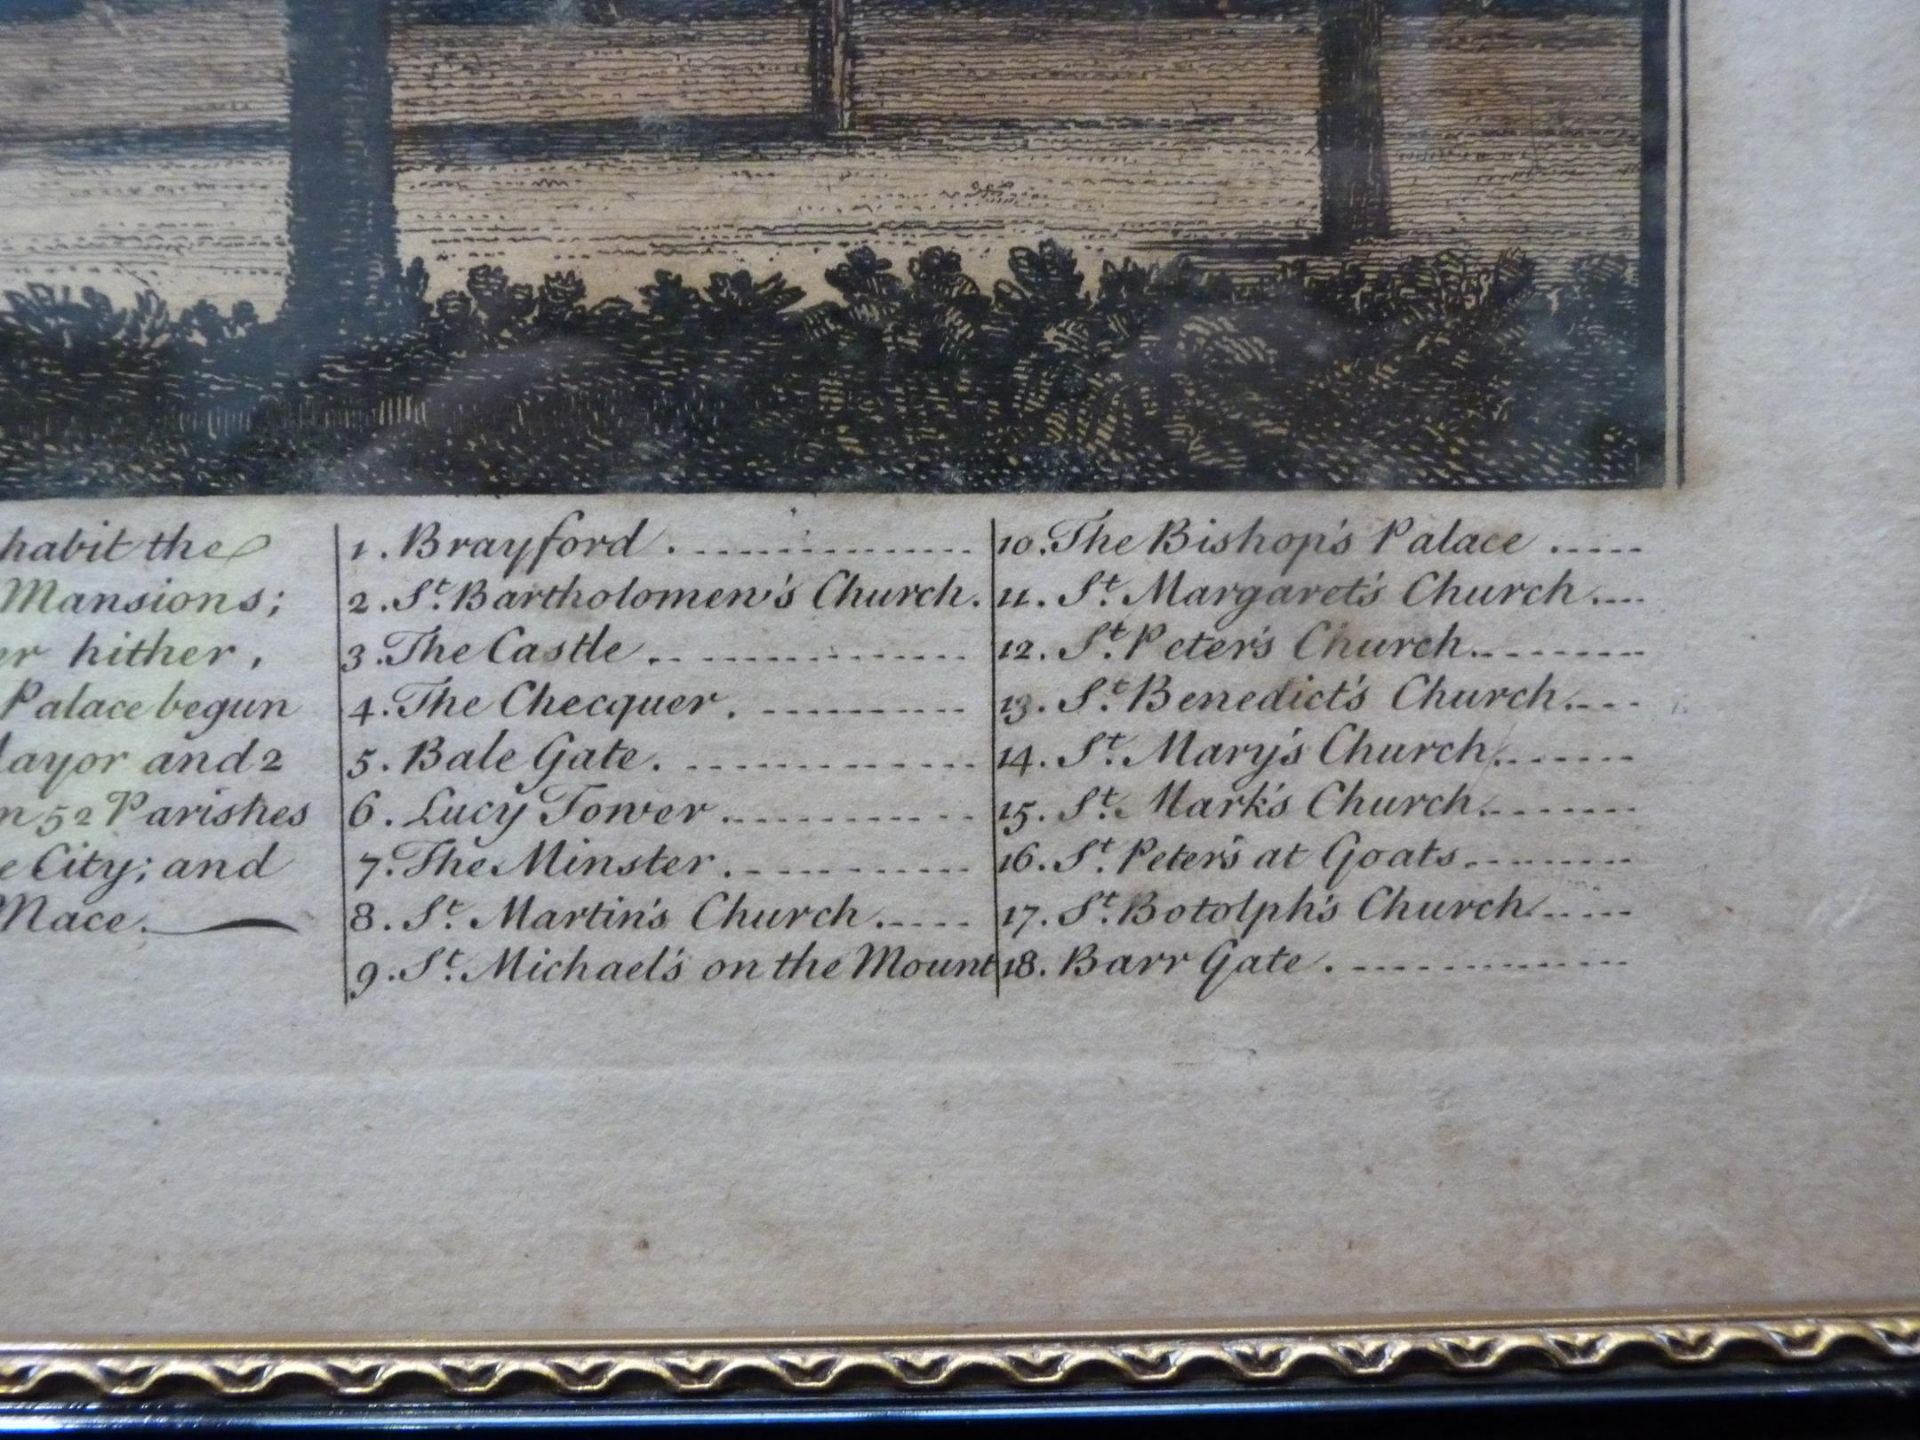 habit the
Mansions;
er hither,
Palace begun
Mayor and 2
in 52 Parishes
e City; and
Mace.
1. Brayford
2. St. Bartholomew's Church.
3. The Castle
4. The Checquer.
5. Bale Gate.
6. Lucy Tower
7. The Minster
8. St. Martin's Church
9. St. Michael's on the Mount
10. The Bishop's Palace
11. St. Margaret's Church
12. St. Peter's Church
13. St. Benedict's Church
14. St. Mary's Church
15. St. Mark's Church
16. St. Peter's at Goats
17. St. Botolph's Church
18. Barr Gate